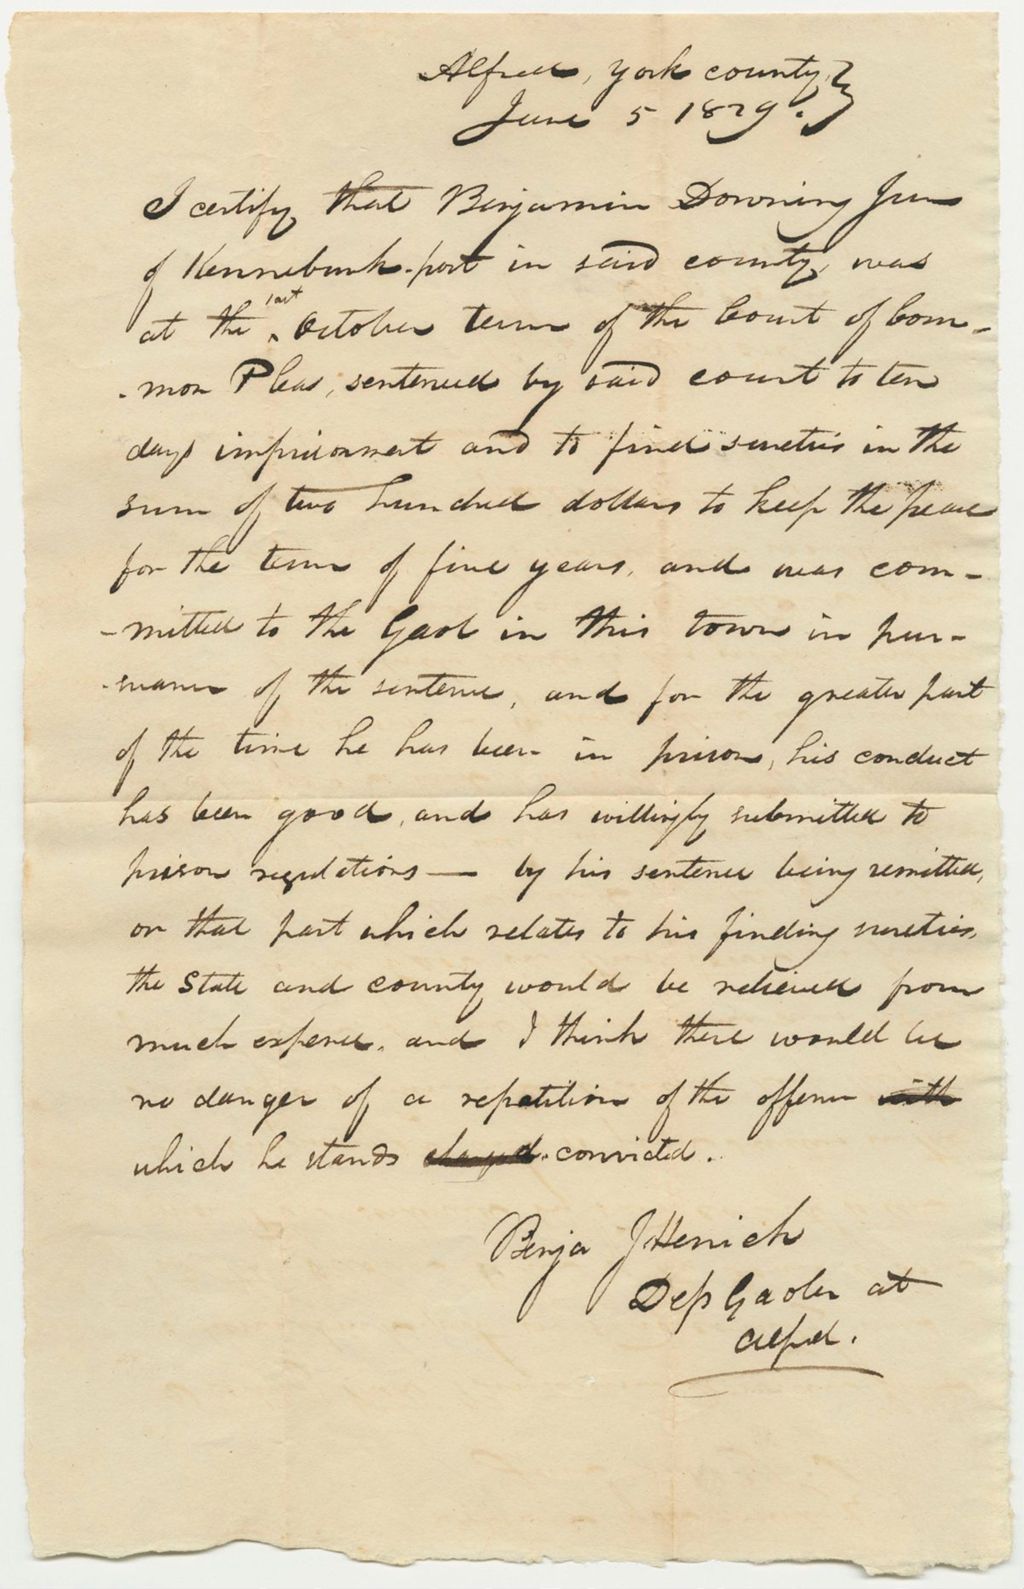 Alfred, York county,
June 5 1829.
I certify that Benjamin Downing Jun
of Kennebunk-port in said county, was
at the last October term of the Court of Com-
-mon Pleas, sentenced by said court to ten
days imprisonment and to find sureties in the
sum of two hundred dollars to keep the peace
for the term of five years, and was com-
-mitted to the Gaol in this town in pur-
-suance of the sentence, and for the greater part
of the time he has been in prison, his conduct
has been good, and has willingly submitted to
prison regulations — by his sentence being remitted,
or that part which relates to his finding sureties,
the State and county would be relieved from
much expense, and I think there would be
no danger of a repetition of the offence with
which he stands charged convicted.
Benja J Herrick
Dep Gaoler at
Alfred.